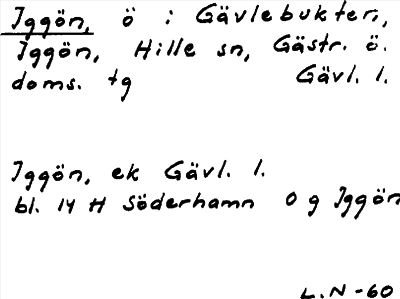 Iggön, ö i Gävlebukten,
Iggön, Hille sn, Gästr. ö.
doms. tg Gävl. l.
Iggön, ek Gävl. l.
bl. 14 H Söderhamn O g Iggön
L.N-60